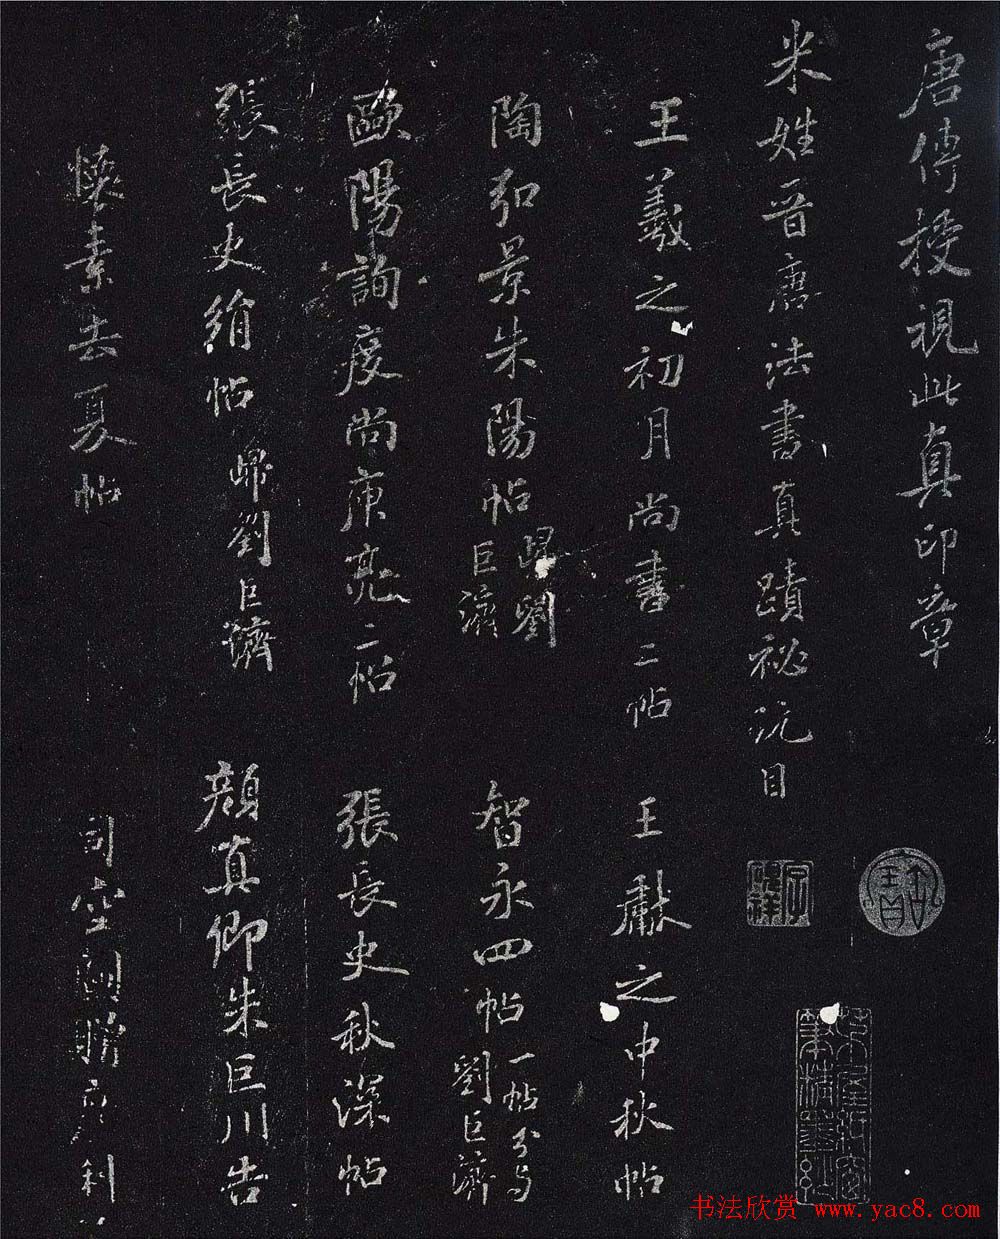 唐傅授視此真印章
米姓晉唐法書真蹟祕玩目
王羲之初月尚書二帖 王獻之中秋帖
陶弘景朱陽帖 歸劉巨濟 智永四帖 一帖分与劉巨濟
歐陽詢度尚庾亮二帖 張長史秋深帖
張長史 帖 歸劉巨濟 顏真卿朱巨川告
懷素去夏帖 司空圖贈 利
书法欣赏 www.yac8.com